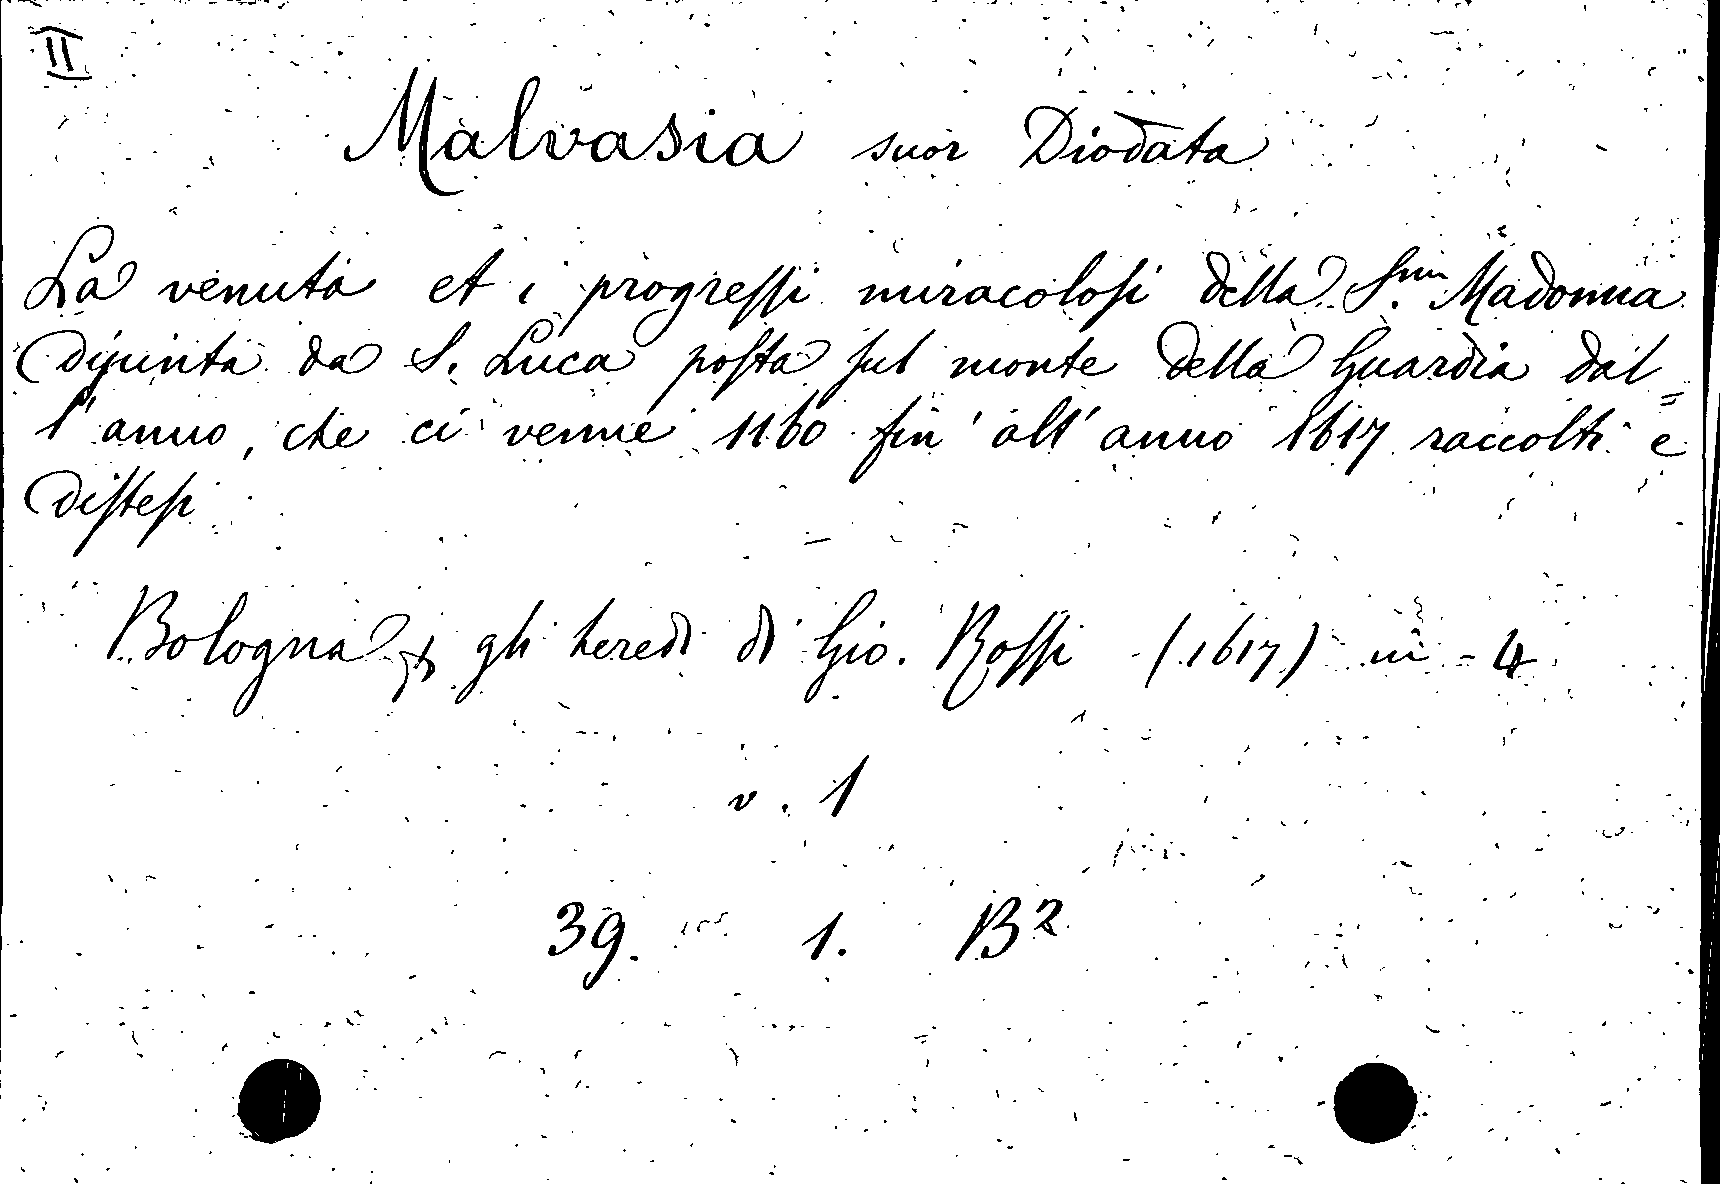 II
Malvasia suor Diodata
La venuta et i progreſſi miracoloſi della S.ma Madonna
dipinta da S. Luca poſta ſul monte della Guardia dal=
l'anno, che ci venne 1160 fin' all' anno 1617 raccolti e
diſteſi
Bologna p gli heredi di Gio. Roſſi (1617) in - 4
v. 1
39. 1. B²